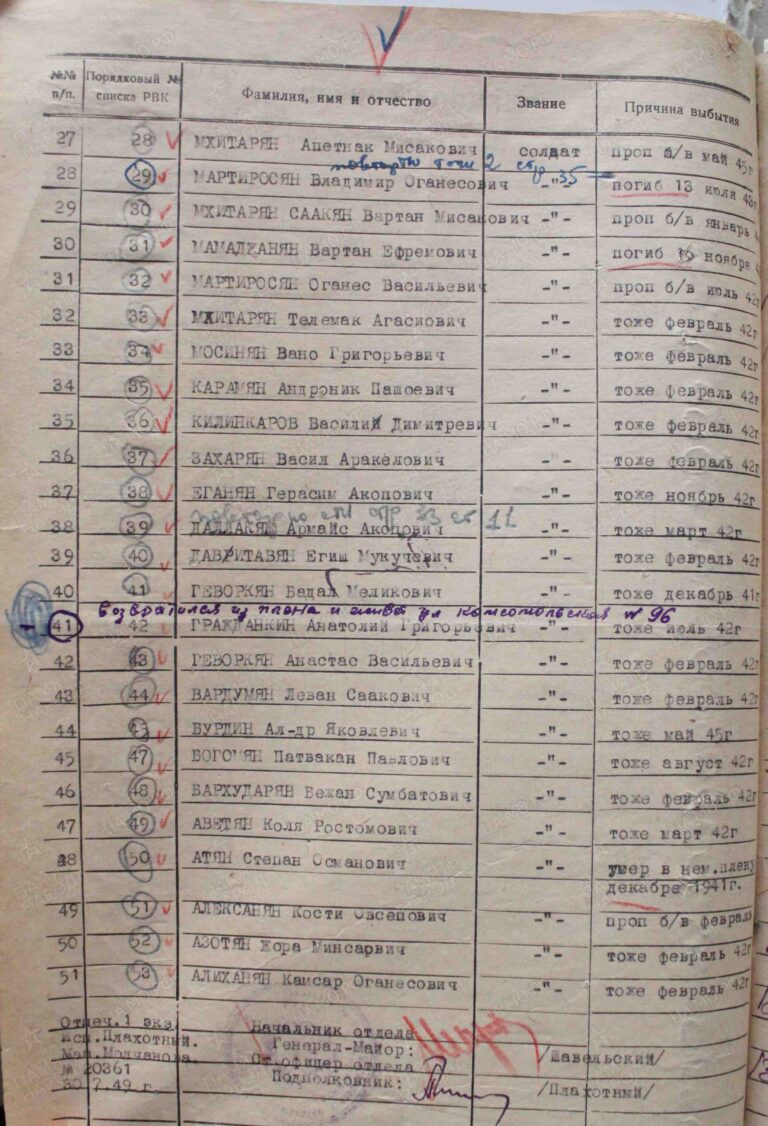 №№ п/п. Порядковый № списка РВК Фамилия, имя и отчество Звание Причина выбытия
27 28 МХИТАРЯН Апетнак Мисакович солдат проп б/в май 45г
повторно 2 стр 35
28 29 МАРТИРОСЯН Владимир Оганесович -"- погиб 13 июля 43г
29 30 МХИТАРЯН СААКЯН Вартан Мисакович -"- проп б/в январь
30 31 МАМАДЖАНЯН Вартан Ефремович -"- погиб 16 ноября
31 32 МАРТИРОСЯН Оганес Васильевич -"- проп б/в июль 42г
32 33 МХИТАРЯН Телемак Агасиович -"- тоже февраль 42г
33 34 МОСИНЯН Вано Григорьевич -"- тоже февраль 42г
34 35 КАРАМЯН Андроник Пашоевич -"- тоже февраль 42г
35 36 КИЛИНКАРОВ Василий Димитревич -"- тоже февраль 42г
36 37 ЗАХАРЯН Васил Аракелович -"- тоже февраль 42г
37 38 ЕГАНЯН Герасим Акопович -"- тоже ноябрь 42г
повторно стр 33 ст 11
38 39 ДАЛЛАКЯН Армайс Акопович -"- тоже март 42г
39 40 ДАВИТАВЯН Егиш Мукучевич -"- тоже февраль 42г
40 41 ГЕВОРКЯН Бадал Меликович -"- тоже декабрь 41г
возвратился из плена и живет ул комсомольская № 96
41 42 ГРАЖДАНКИН Анатолий Григорьевич -"- тоже июль 42г
42 43 ГЕВОРКЯН Анастас Васильевич -"- тоже февраль 42г
43 44 ВАРДУМЯН Леван Саакович -"- тоже февраль 42г
44 45 БУРДИН Ал-др Яковлевич -"- тоже май 45г
45 47 БОГОМЯН Патвакан Павлович -"- тоже август 42г
46 48 БАРХУДАРЯН Бежан Сумбатович -"- тоже февраль 42г
47 49 АВЕТЯН Коля Ростомович -"- тоже март 42г
48 50 АТЯН Степан Османович умер в нем.плену
декабре 1941г.
49 51 АЛЕКСАНЯН Кости Овсепович -"- проп б/в февраль
50 52 АЗОТЯН Жора Минсарвич -"- тоже февраль 42г
51 53 АЛИХАНЯН Камсар Оганесович -"- тоже февраль 42г
Отпеч.1 экз. Начальник отдела
Исп.Плахотный. Генерал-Майор: /Шавельский/
Маш.Молчанова. Ст.офицер отдела
№ 20361 Подполковник: /Плахотный/
30 7.49 г.